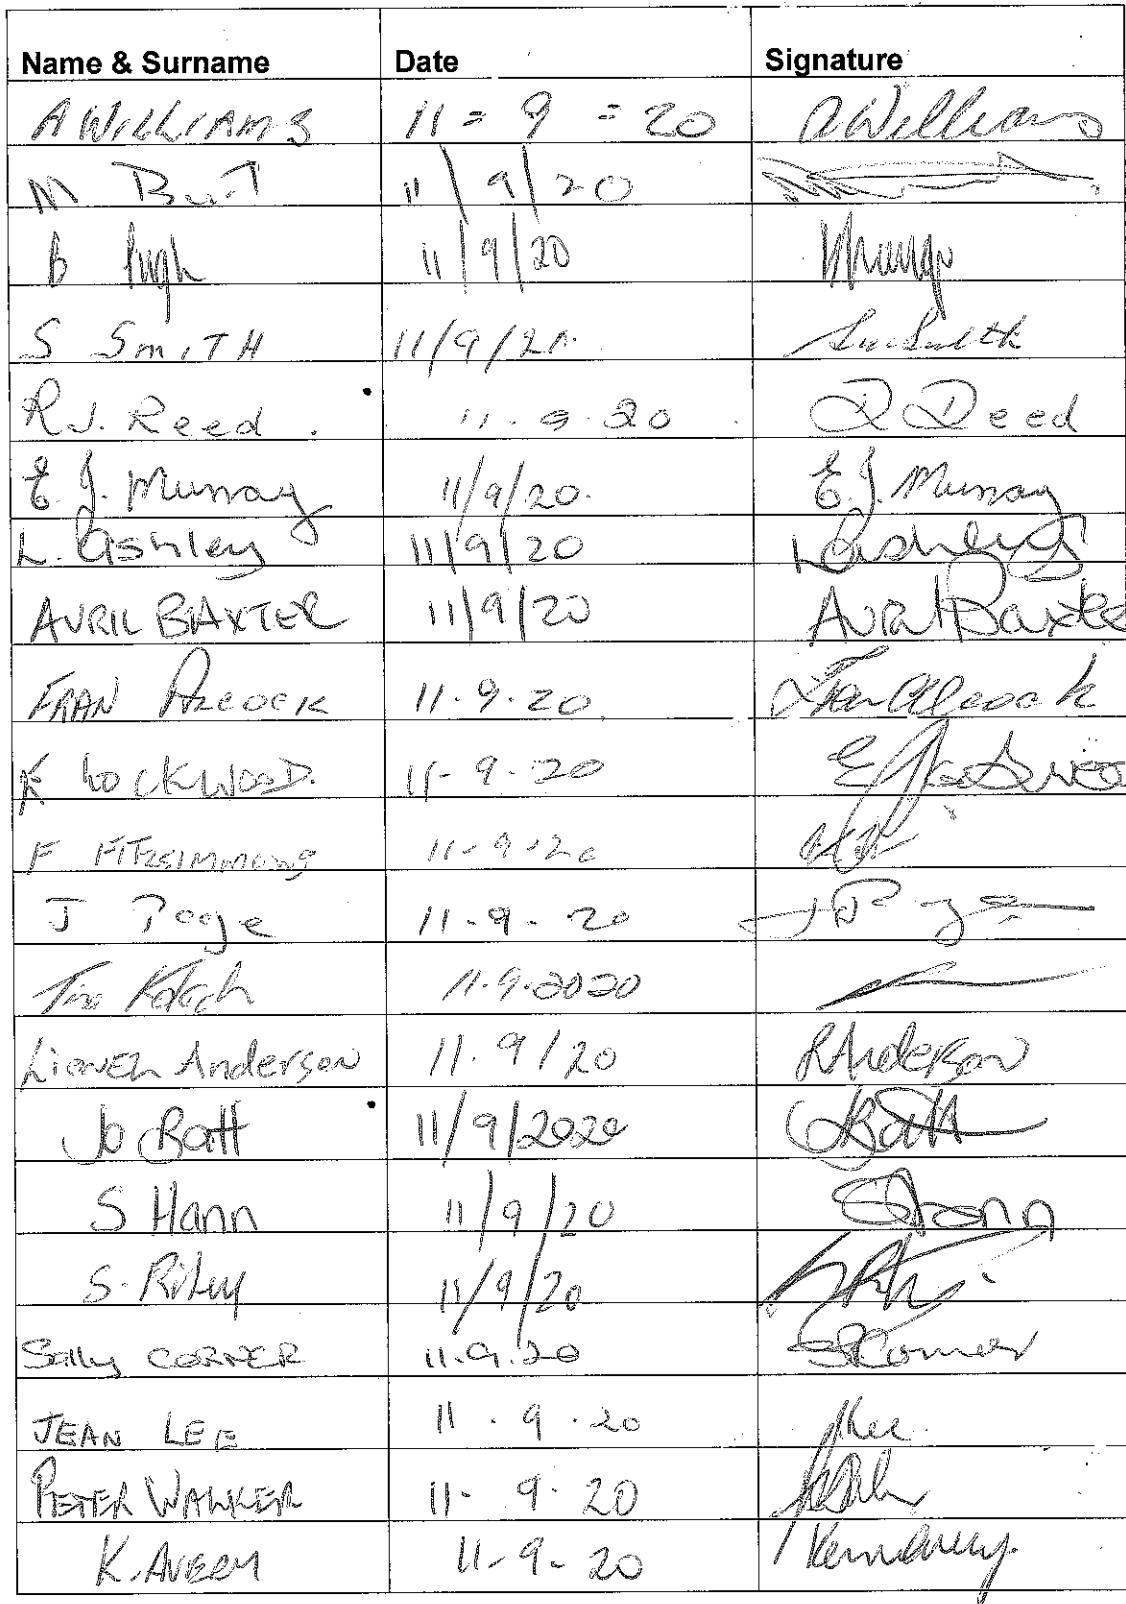 Name & Surname Date Signature
A WILLIAMS 11 = 9 = 20 A Williams
M 11/9/20
B Pugh 11/9/20
S SMITH 11/9/20 Sue Smith
R.J. Reed. 11.9.20 R Reed
E. J. Murray 11/9/20. E. J. Murray
L. Ashley 11/9/20 L Ashley
AVRIL BAXTER 11/9/20 Avril Baxter
FRAN ALCOCK 11.9.20 Fran Alcock
K LOCKWOOD. 11-9-20
F FITZSIMMONS 11-9-20
J Page 11-9-20 J P
Tim 11.9.2020
LIONEL Anderson 11.9/20 Anderson
Jo Batt 11/9/2020 Batt
S Hann 11/9/20 S Hann
S. Riley 11/9/20
Sally CORNER 11.9.20 S Corner
JEAN LEE 11.9.20 J Lee
PETER WALKER 11-9.20
K. AVERY 11-9-20